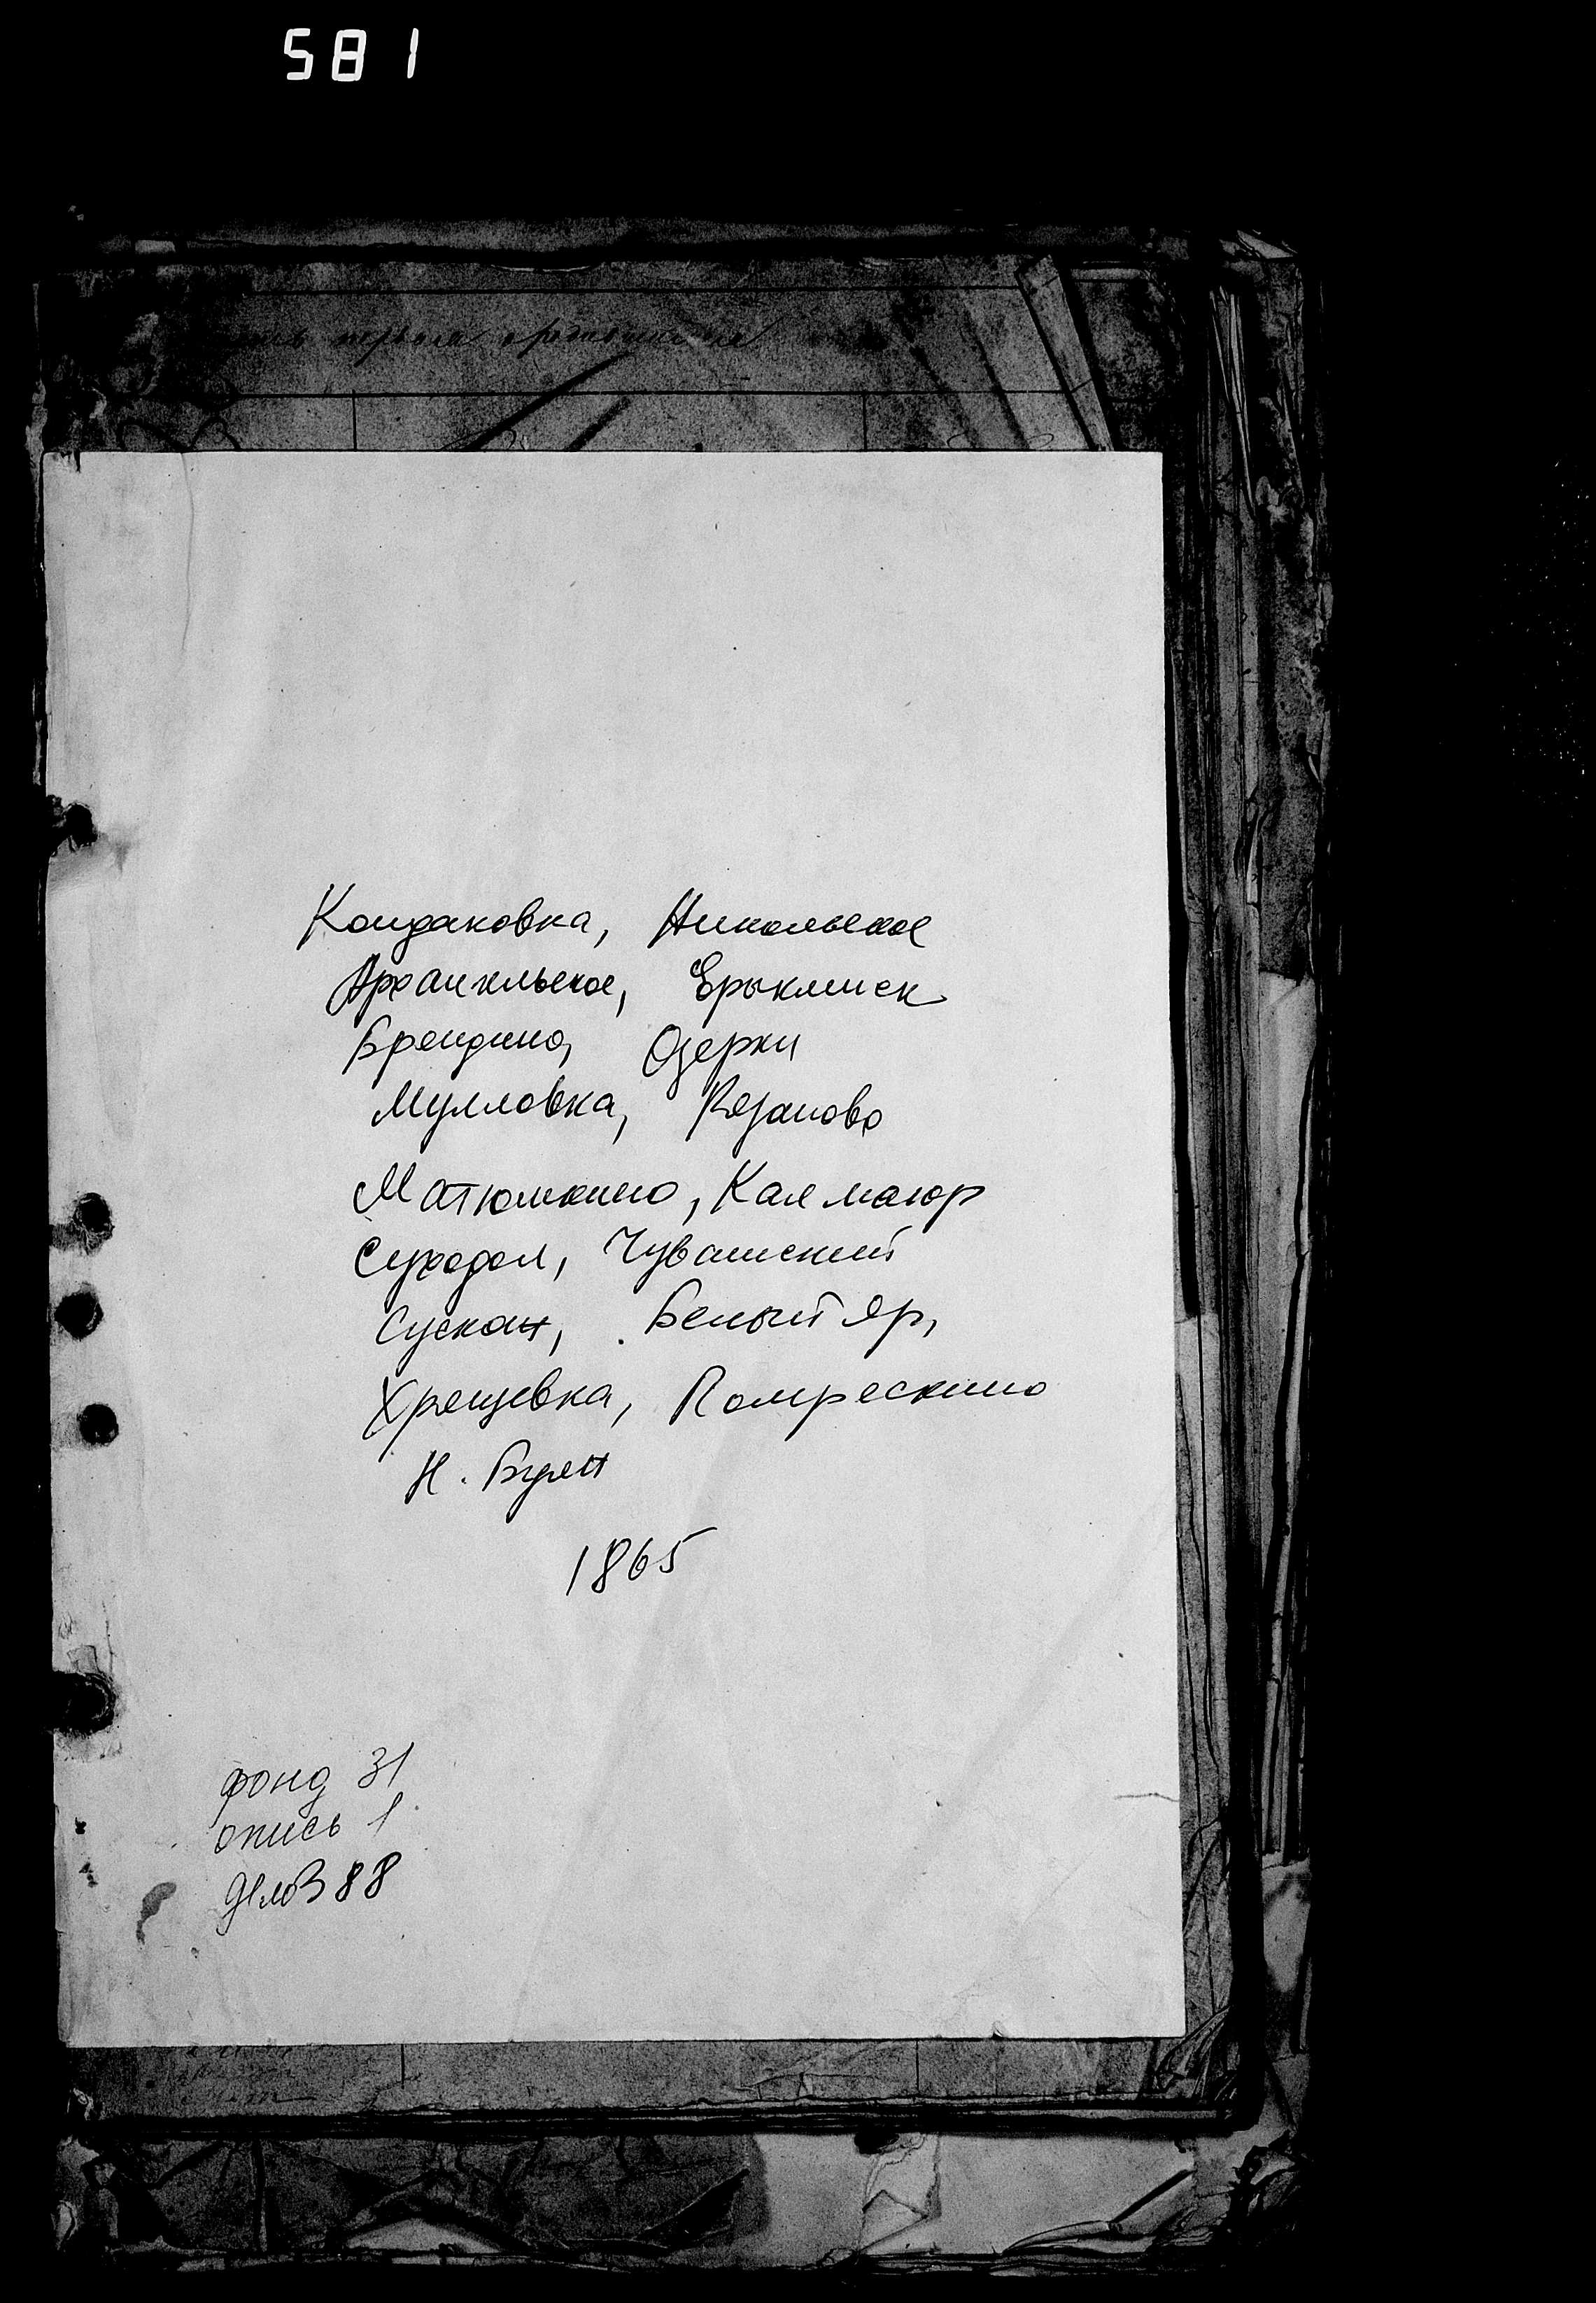 581
Кондаковка, Никольское
Архангельское, Ерыклинск
Бряндино, Озерки
Мулловка, Рязаново
Матюшкино, Калмаюр
Суходол, Чувашский
Сускан, Белый Яр,
Хрящевка, Помряскино
Н. Буян
1865
фонд 31
опись 1
дело 88